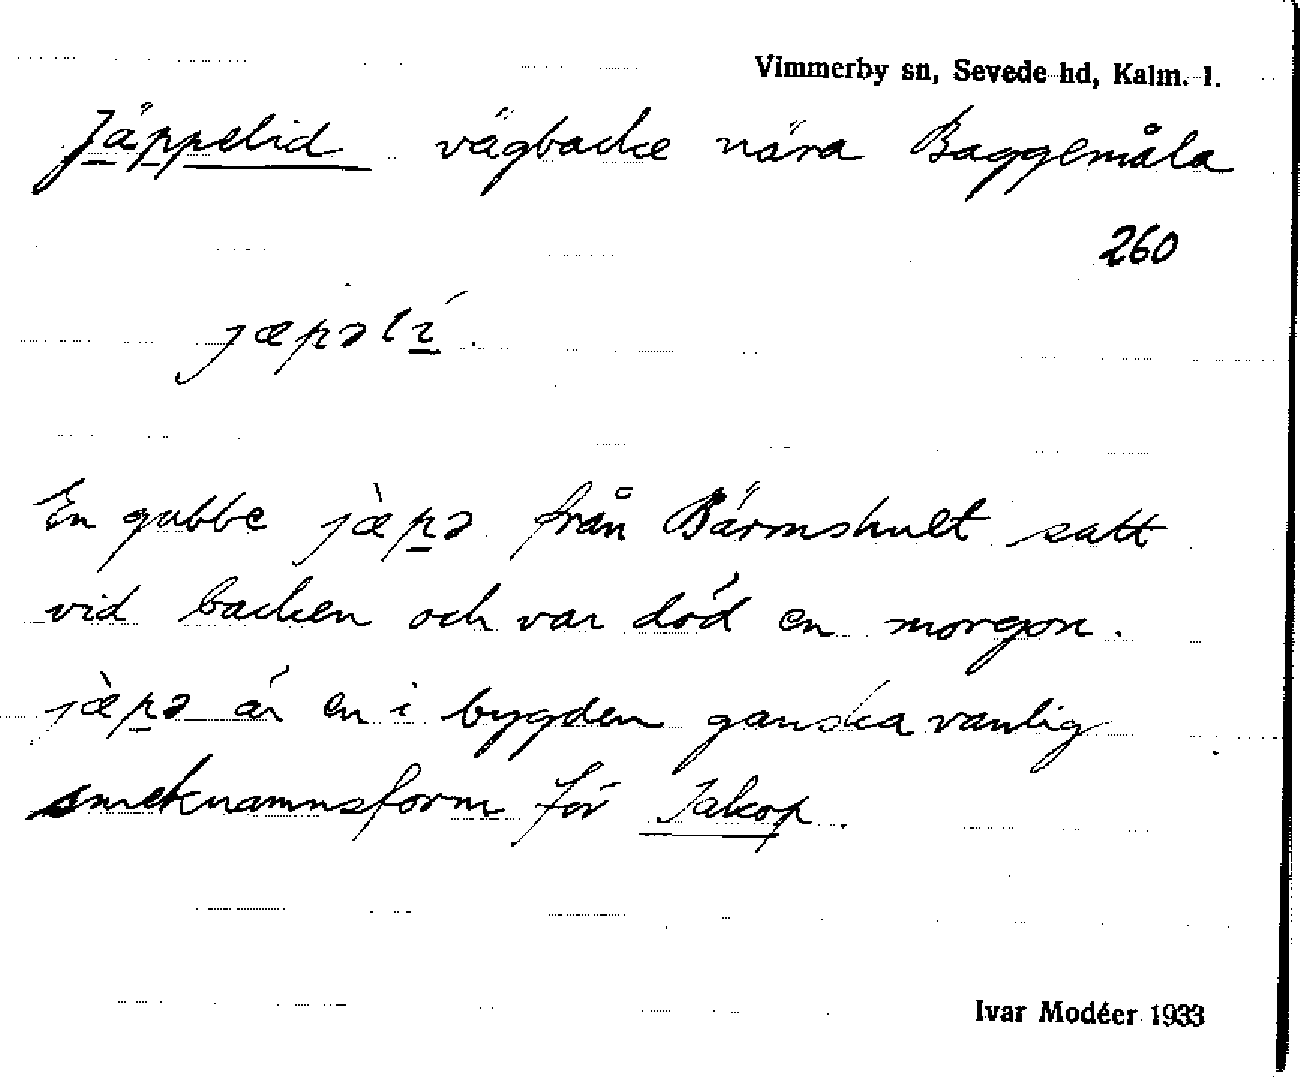 Vimmerby sn, Sevede hd, Kalm. l.
Jäppelid vägbacke nära Baggemåla
260
jæpəlí.
En gubbe jæ̀pə från Bärmshult satt
vid backen och var död en morgon.
jæ̀pə är en i bygden ganska vanlig
smeknamnsform för Jakop.
Ivar Modéer 1933